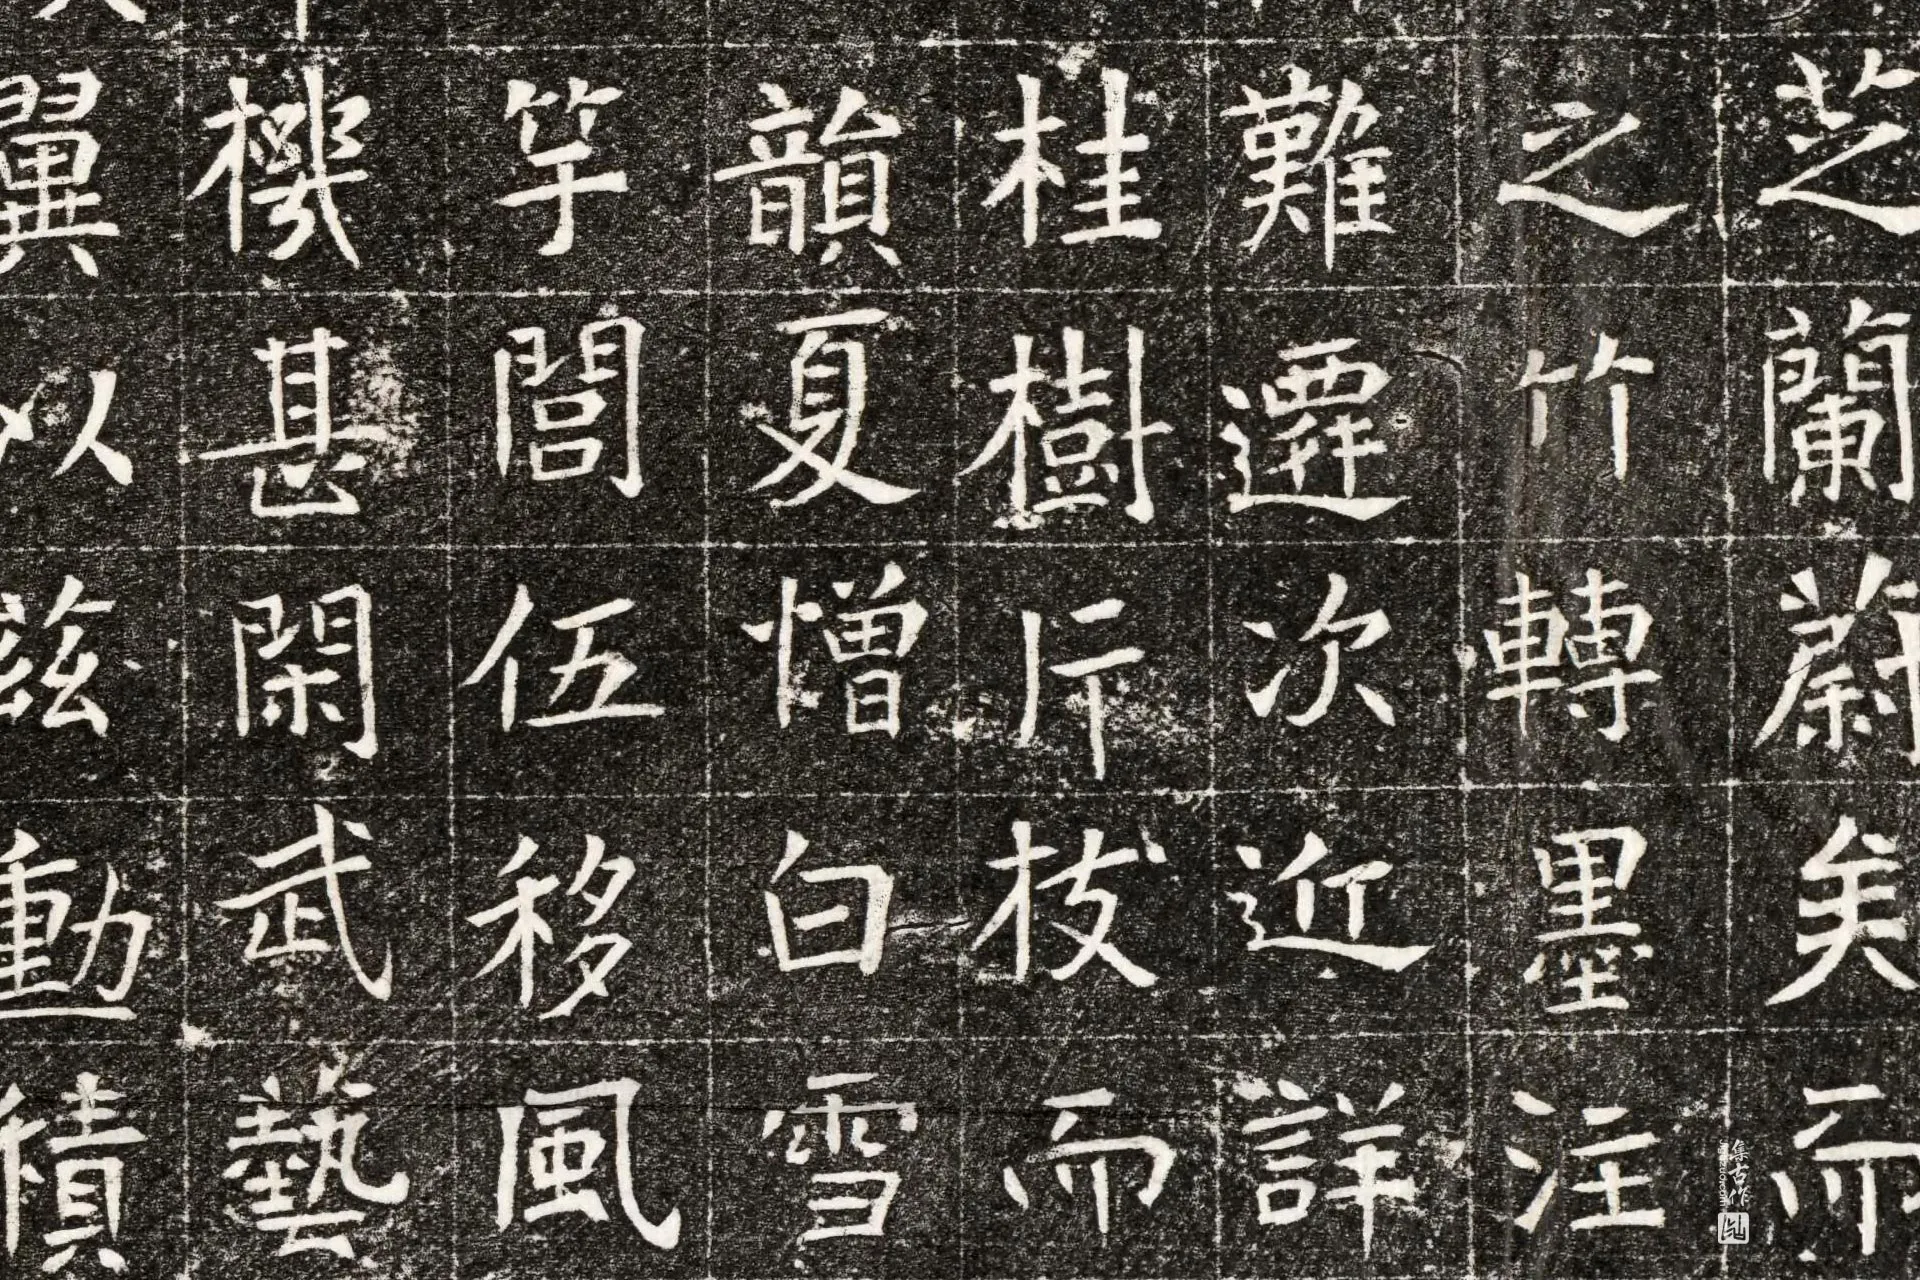 芝蘭蔚矣而
之竹轉墨注
難遷次近詳
桂樹片枝而
韻夏憎白雪
竿閭伍移風
機甚閑武藝
翼以兹動績
集古作